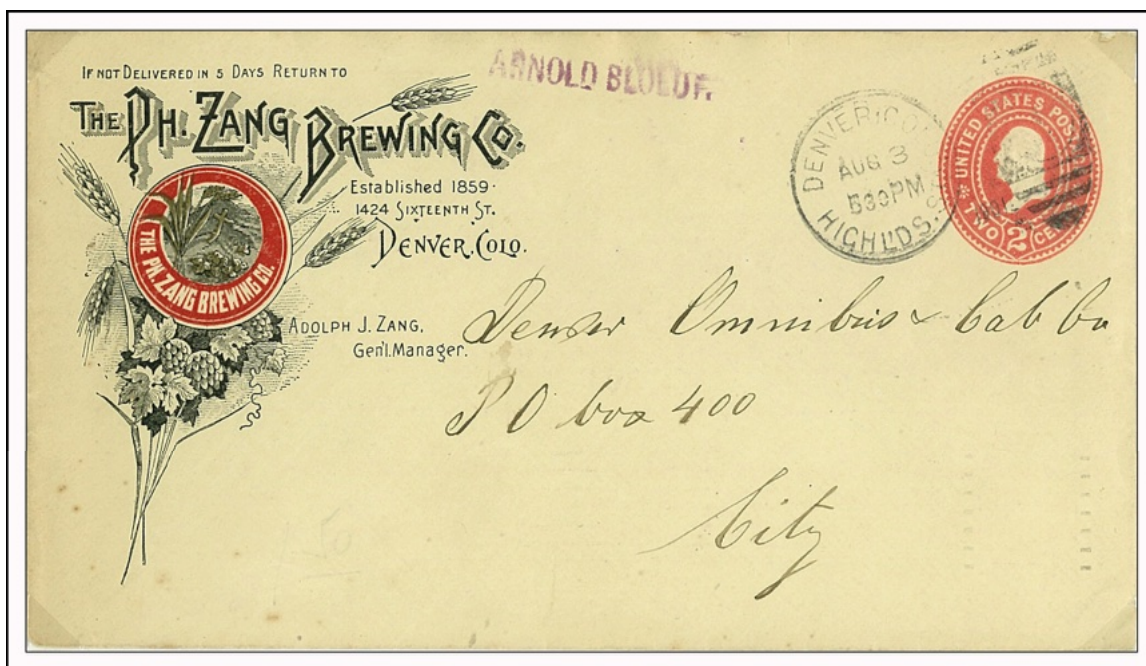 IF NOT DELIVERED IN 5 DAYS RETURN TO
THE PH. ZANG BREWING CO.
Established 1859.
1424 SIXTEENTH ST.
DENVER, COLO.
THE PH. ZANG BREWING CO.
ADOLPH J. ZANG,
Gen'l. Manager.
ARNOLD
DENVER, COLO.
AUG 3
530PM
HIGHL'DS.
UNITED STATES POSTAGE
TWO 2 CENTS
Denver Omnibus & Cab Co
P O box 400
City